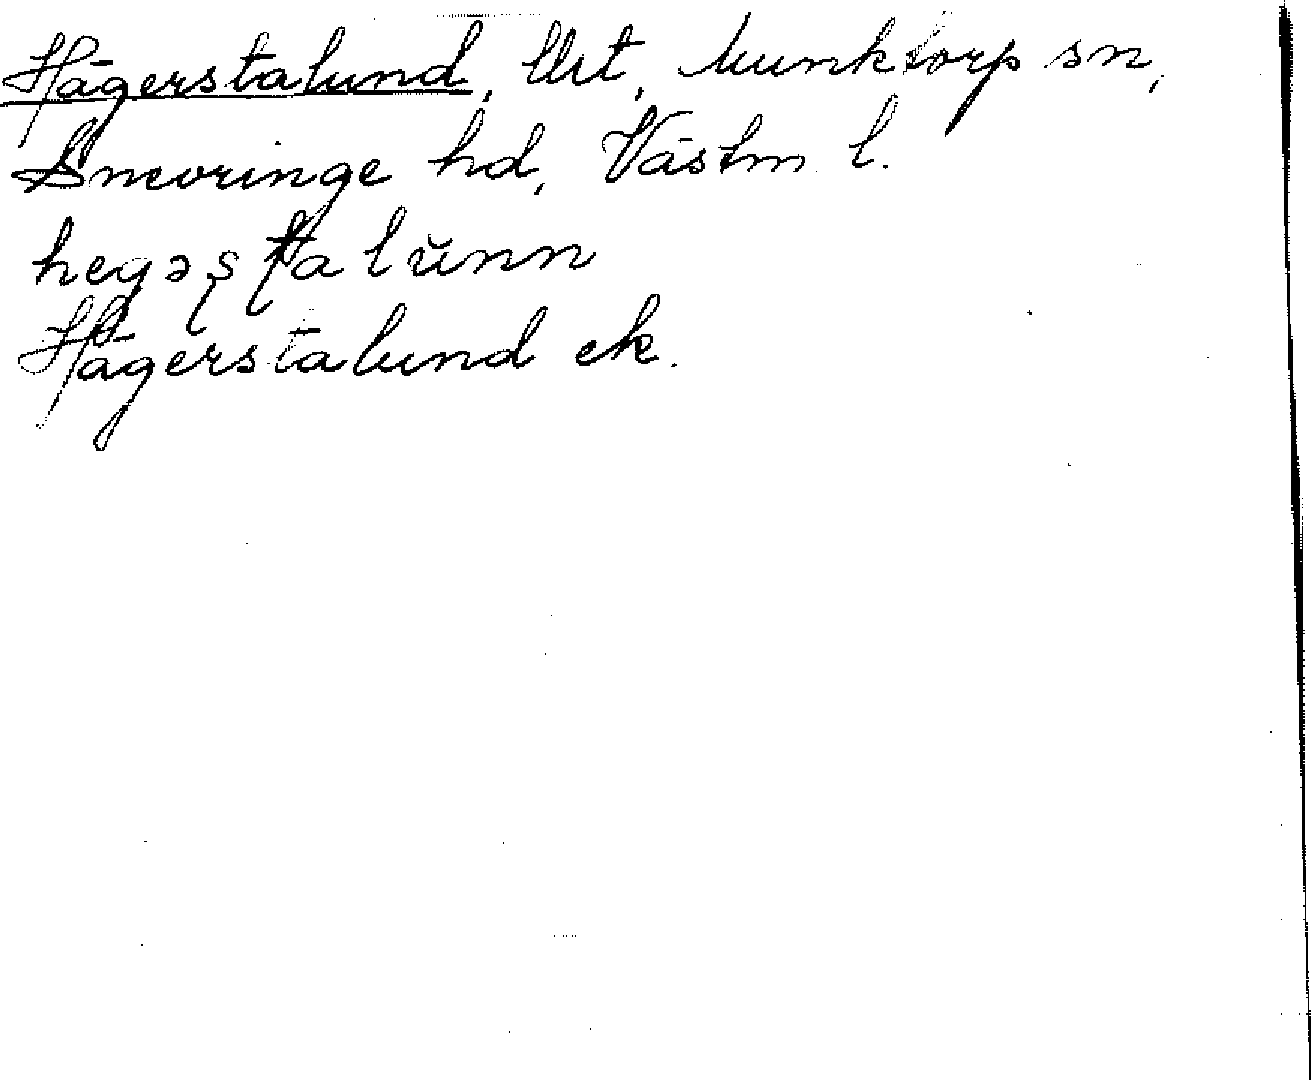 Hägerstalund, Ukt, Munktorp sn,
Snevringe hd, Västm l.
hegəʂʈalŭnn
Hägerstalund ek.